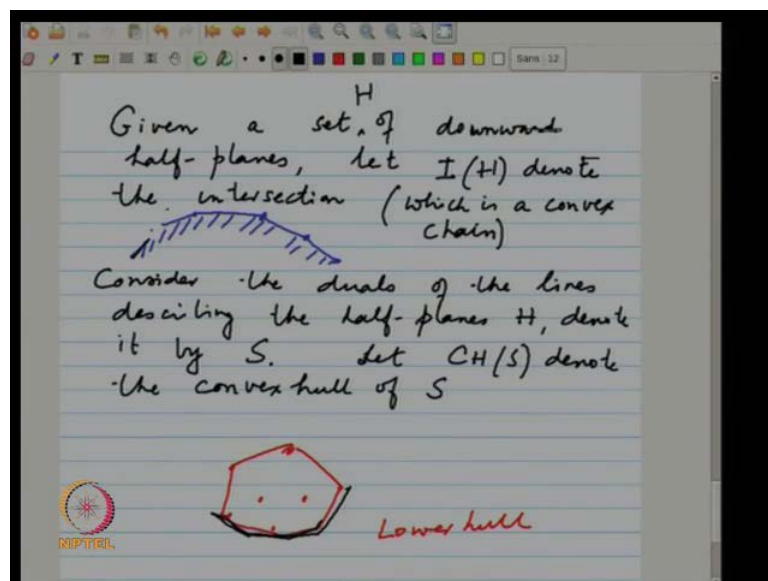 Sans 12
H
Given a set ‸ of downward
half-planes, let I(H) denote
the intersection (which is a convex
chain)
Consider the duals of the lines
describing the half-planes H, denote
it by S. Let CH(S) denote
the convex hull of S
Lower hull
NPTEL